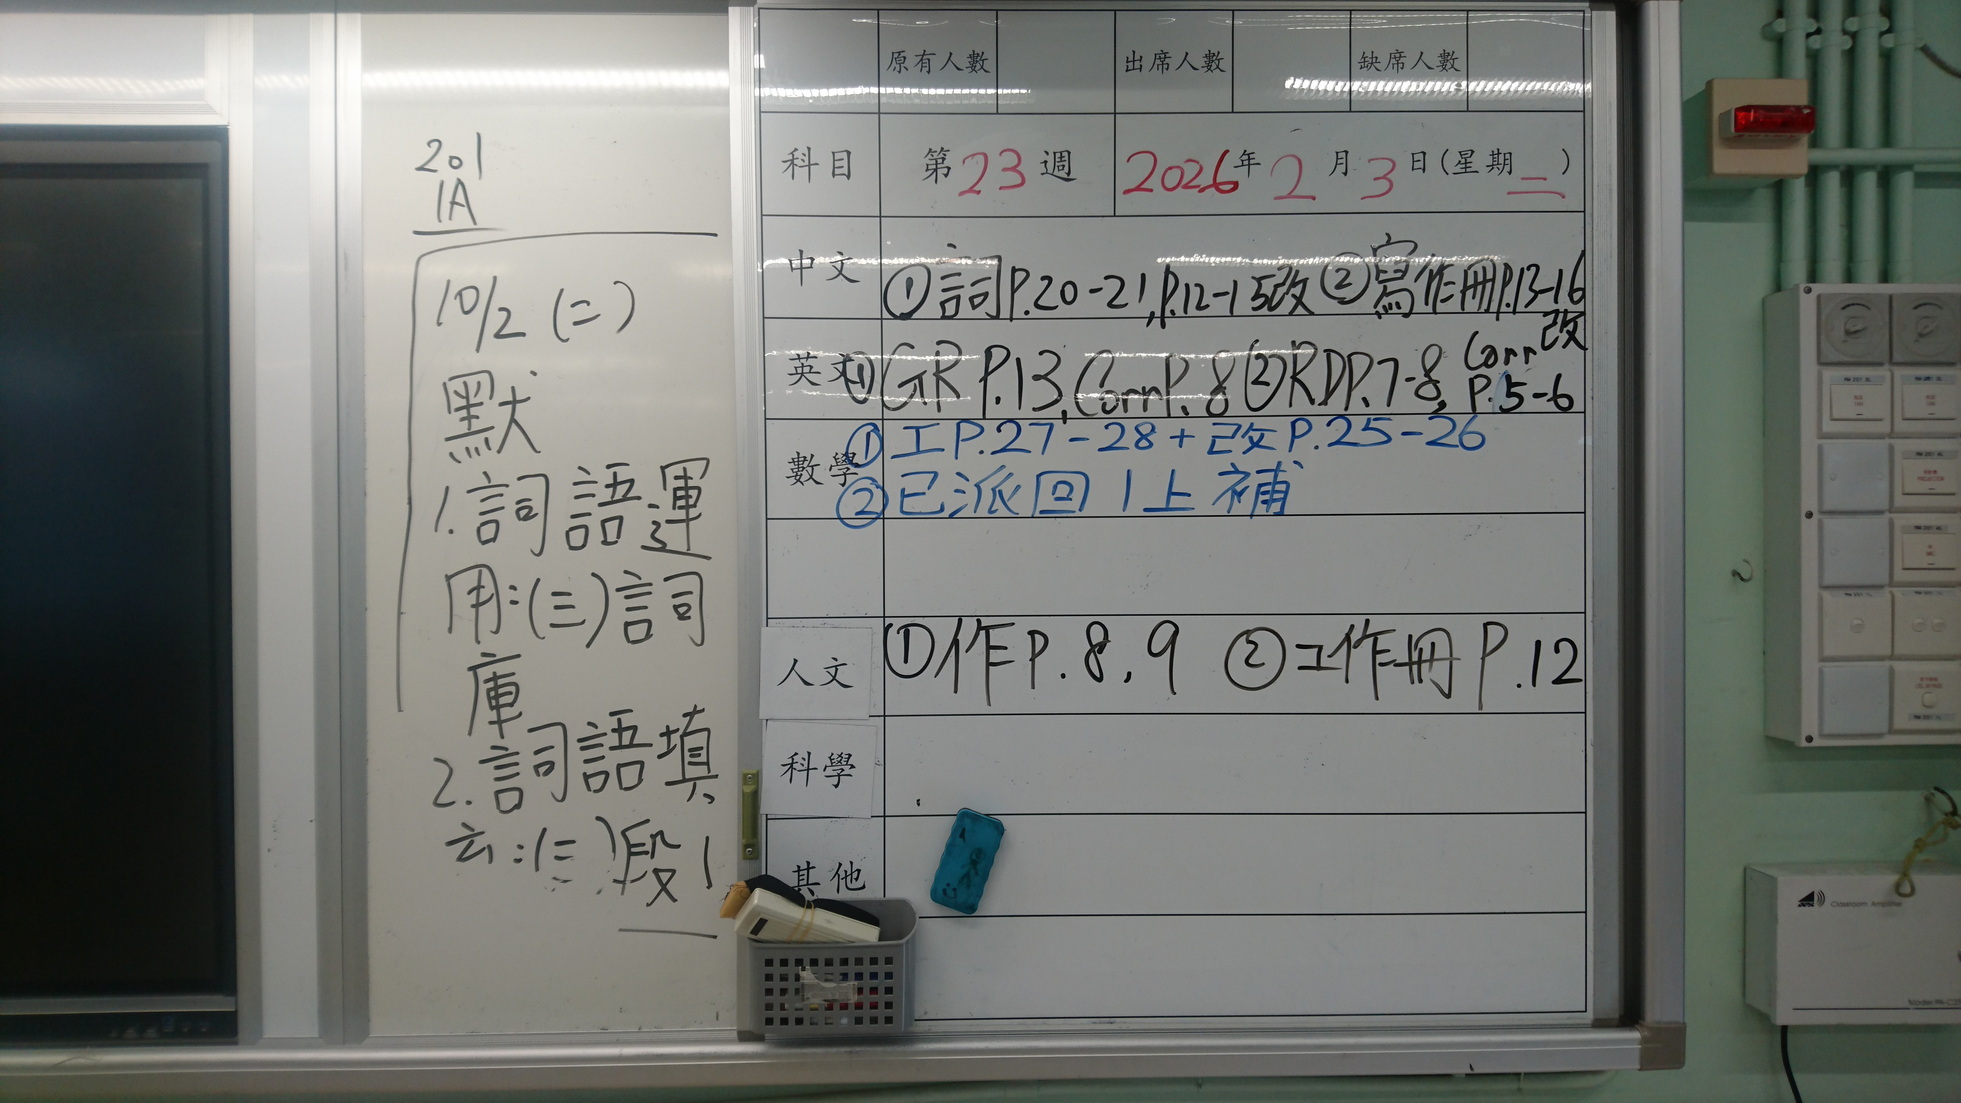 201
1A
10/2 (二)
默
1.詞語運
用:(三)詞
庫
2.詞語填
充:(三)段1
原有人數 出席人數 缺席人數
科目 第23週 2026年2月3日(星期二)
中文 ①詞P.20-21,P.12-15改②寫作冊P.13-16
改
英文 ①GR P.13,Corr P.8②RDP.7-8, Corr
P.5-6
數學 ①工P.27-28+改P.25-26
②已派回1上補
人文 ①作P.8,9 ②工作冊P.12
科學
其他
Classroom Amplifier